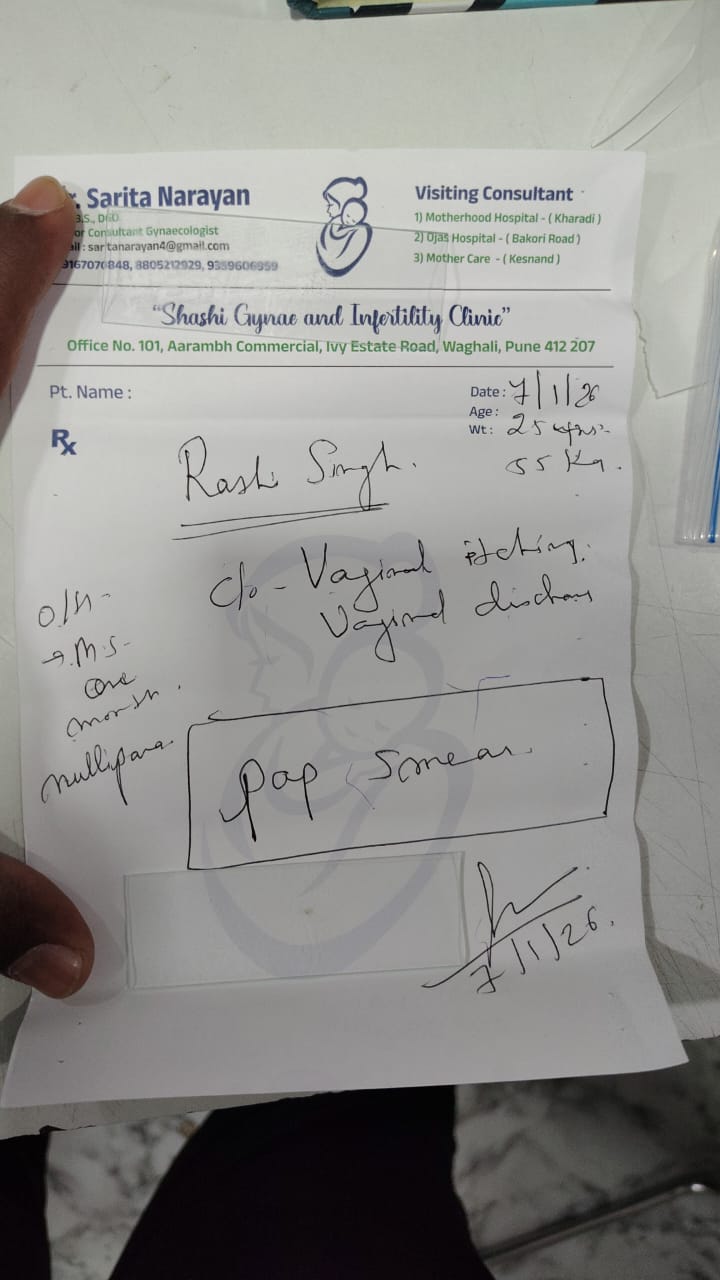 Sarita Narayan
Consultant Gynaecologist
sartanarayan4@gmail.com
9167070848, 8805212929, 9359606959
Visiting Consultant
1) Motherhood Hospital - ( Kharadi )
2) Ojas Hospital - ( Bakori Road )
3) Mother Care - ( Kesnand )
“Shashi Gynae and Infertility Clinic”
Office No. 101, Aarambh Commercial, Ivy Estate Road, Waghali, Pune 412 207
Pt. Name :
Date : 7/1/26
Age :
Wt : 25 yrs
55 Kg.
Rx
Rashi Singh.
c/o - Vaginal itching.
Vaginal
O/H -
→ M.S -
one
month.
nullipara
Pap Smear
7/1/26.